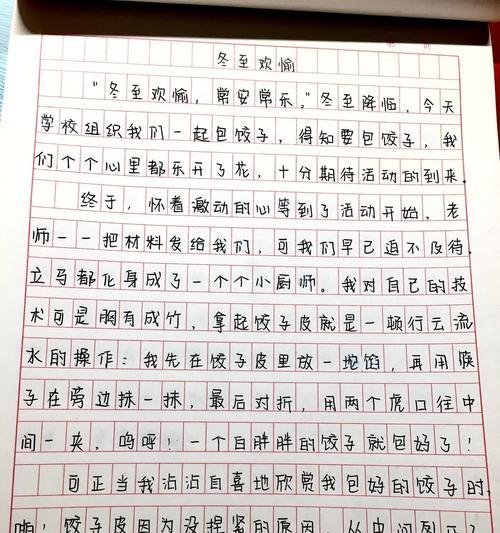 冬至欢愉
"冬至欢愉，常安常乐。"冬至降临，今天
学校组织我们一起包饺子，得知要包饺子，我
们个个心里都乐开了花，十分期待活动的到来。
终于，怀着激动的心等到了活动开始，老
师一一把材料发给我们，可我们早已迫不及待，
立马都化身成了一个个小厨师。我对自己的技
术可是胸有成竹，拿起饺子皮就是一顿行云流
水的操作：我先在饺子皮里放一坨馅，再用筷
子在旁边抹一抹，最后对折，用两个虎口往中
间一夹，呜呼！一个白胖胖的饺子就包好了！
可正当我沾沾自喜地欣赏我包好的饺子时，
啪！饺子皮因为没捏紧的原因，从中间